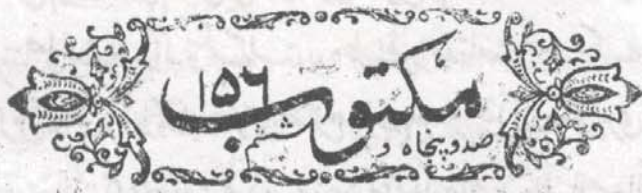 مکتوب ۱۵۶
صد و پنجاه و ششم